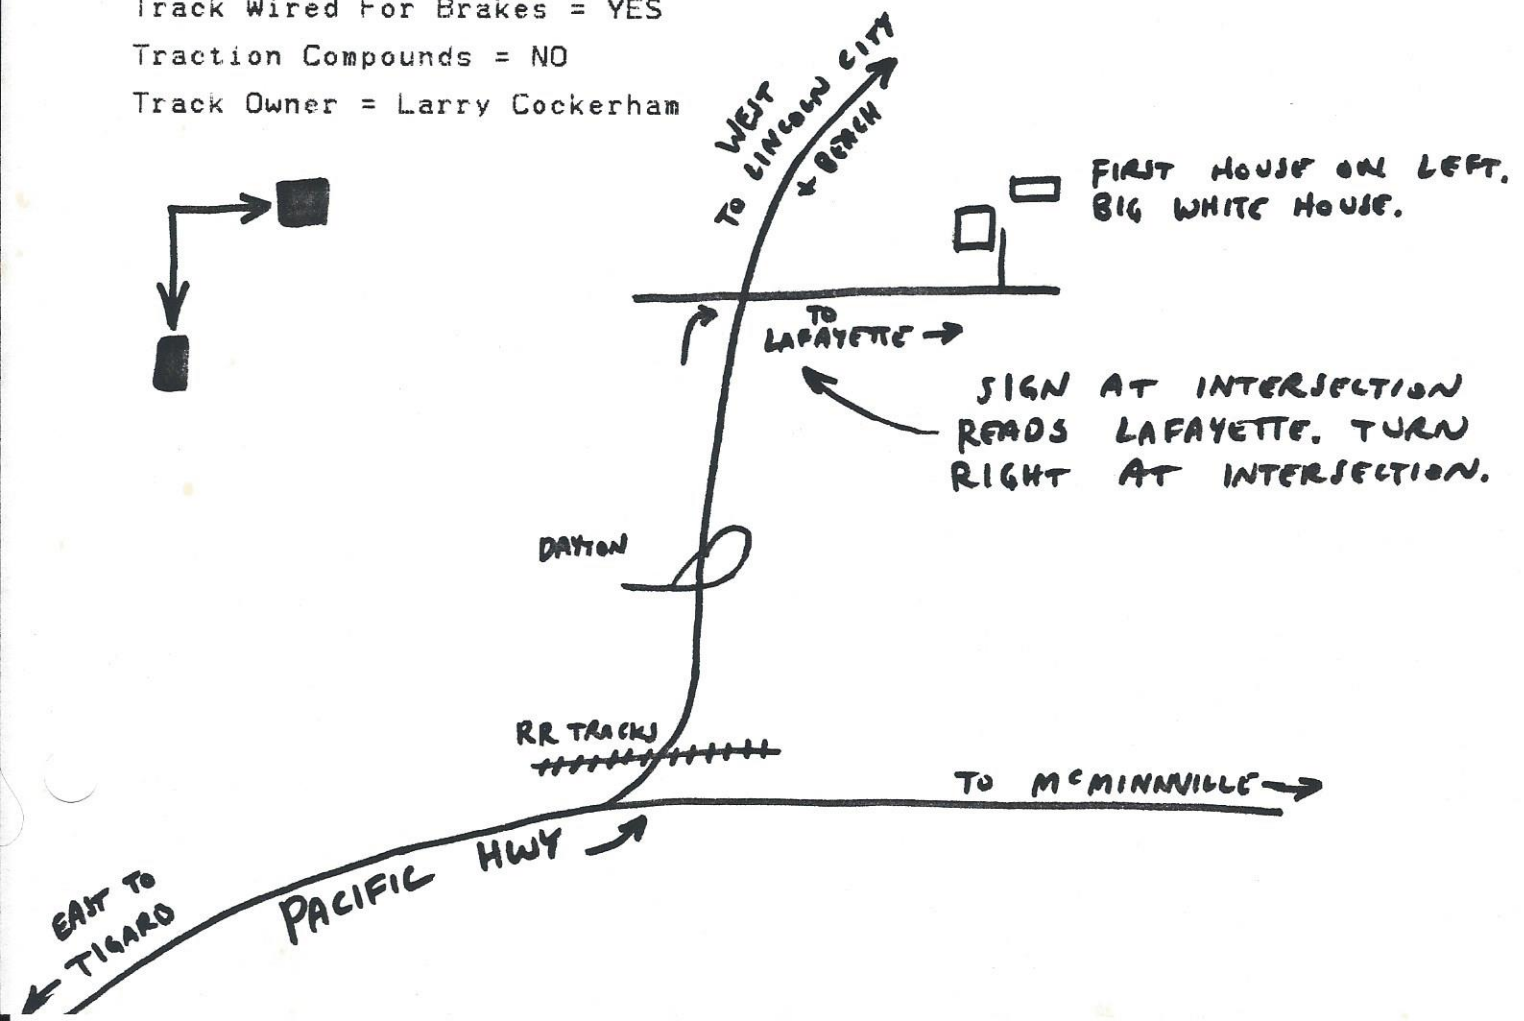 Track Wired For Brakes = YES
Traction Compounds = NO
Track Owner = Larry Cockerham
WEST
TO LINCOLN CITY
+ BEACH
FIRST HOUSE ON LEFT.
BIG WHITE HOUSE.
TO
LAFAYETTE →
SIGN AT INTERSECTION
READS LAFAYETTE. TURN
RIGHT AT INTERSECTION.
DAYTON
RR TRACKS
TO McMINNVILLE →
PACIFIC HWY
EAST TO
TIGARD